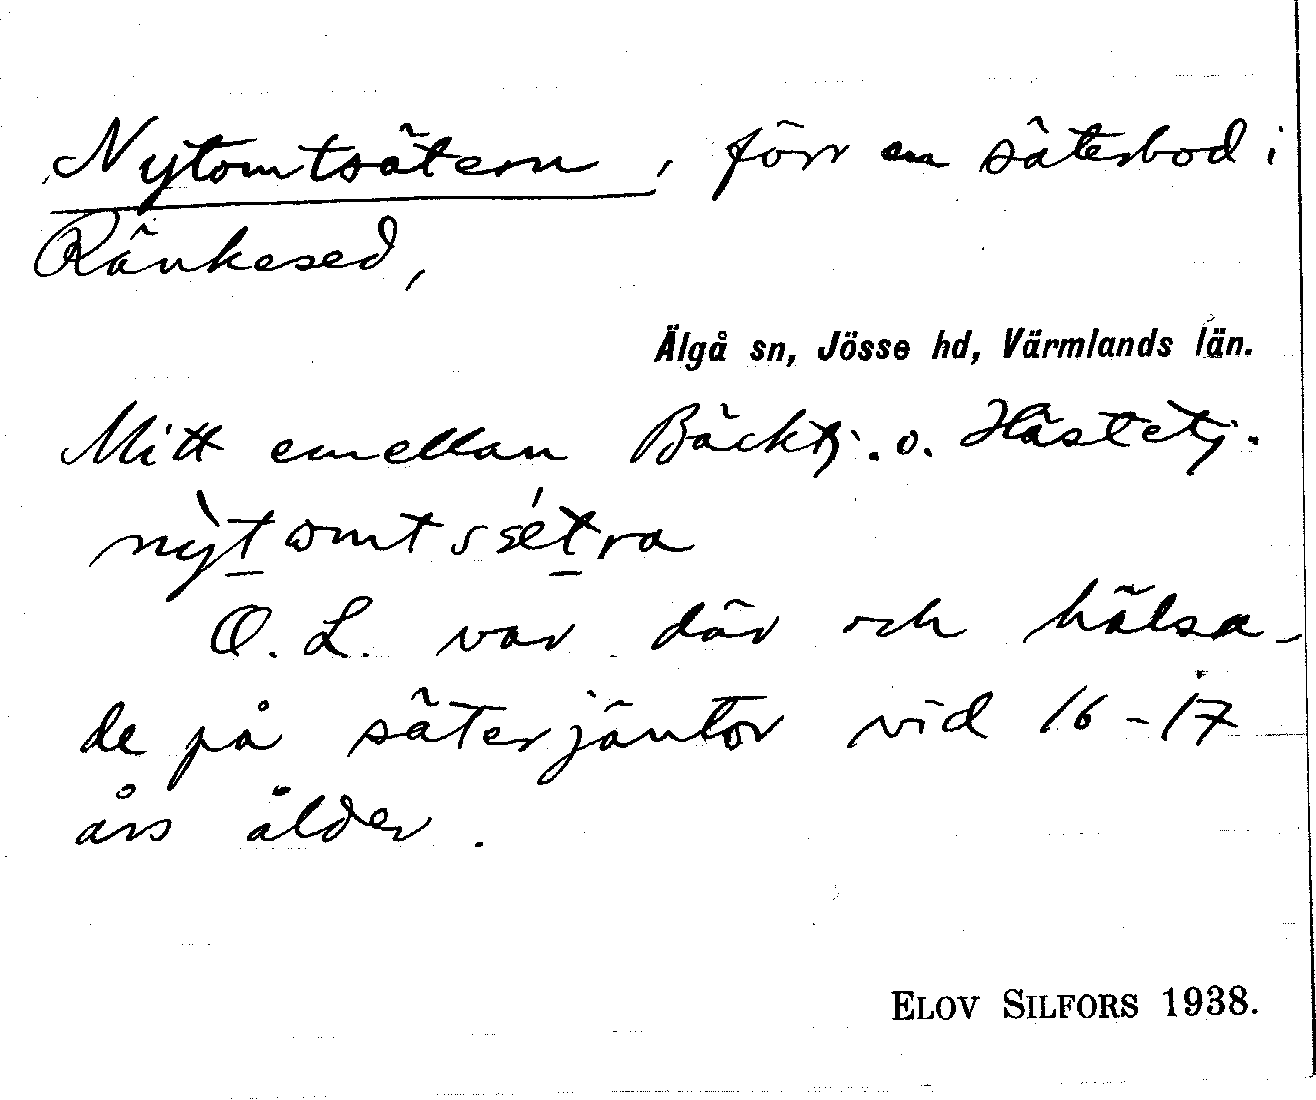 Nytomtsätern, förr en säterbod i
Ränkesed,
Älgå sn, Jösse hd, Värmlands län.
Mitt emellan Bäcktj. o. Hästetj.
nỳtωmtsśétra
O. L. var där och hälsa-
de på säterjäntor vid 16-17
års ålder.
ELOV SILFORS 1938.